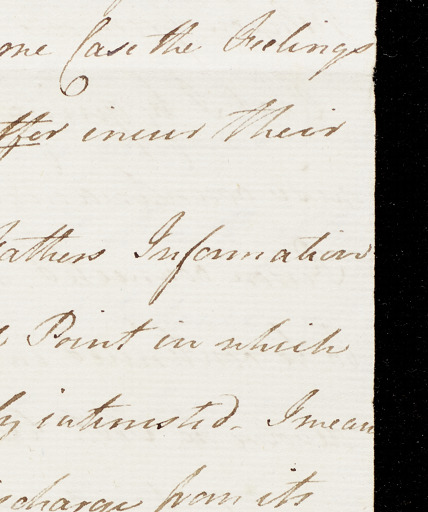 me Case the Feelings
incur their
athers Information
Point in which
interested. I mean
scharge from its